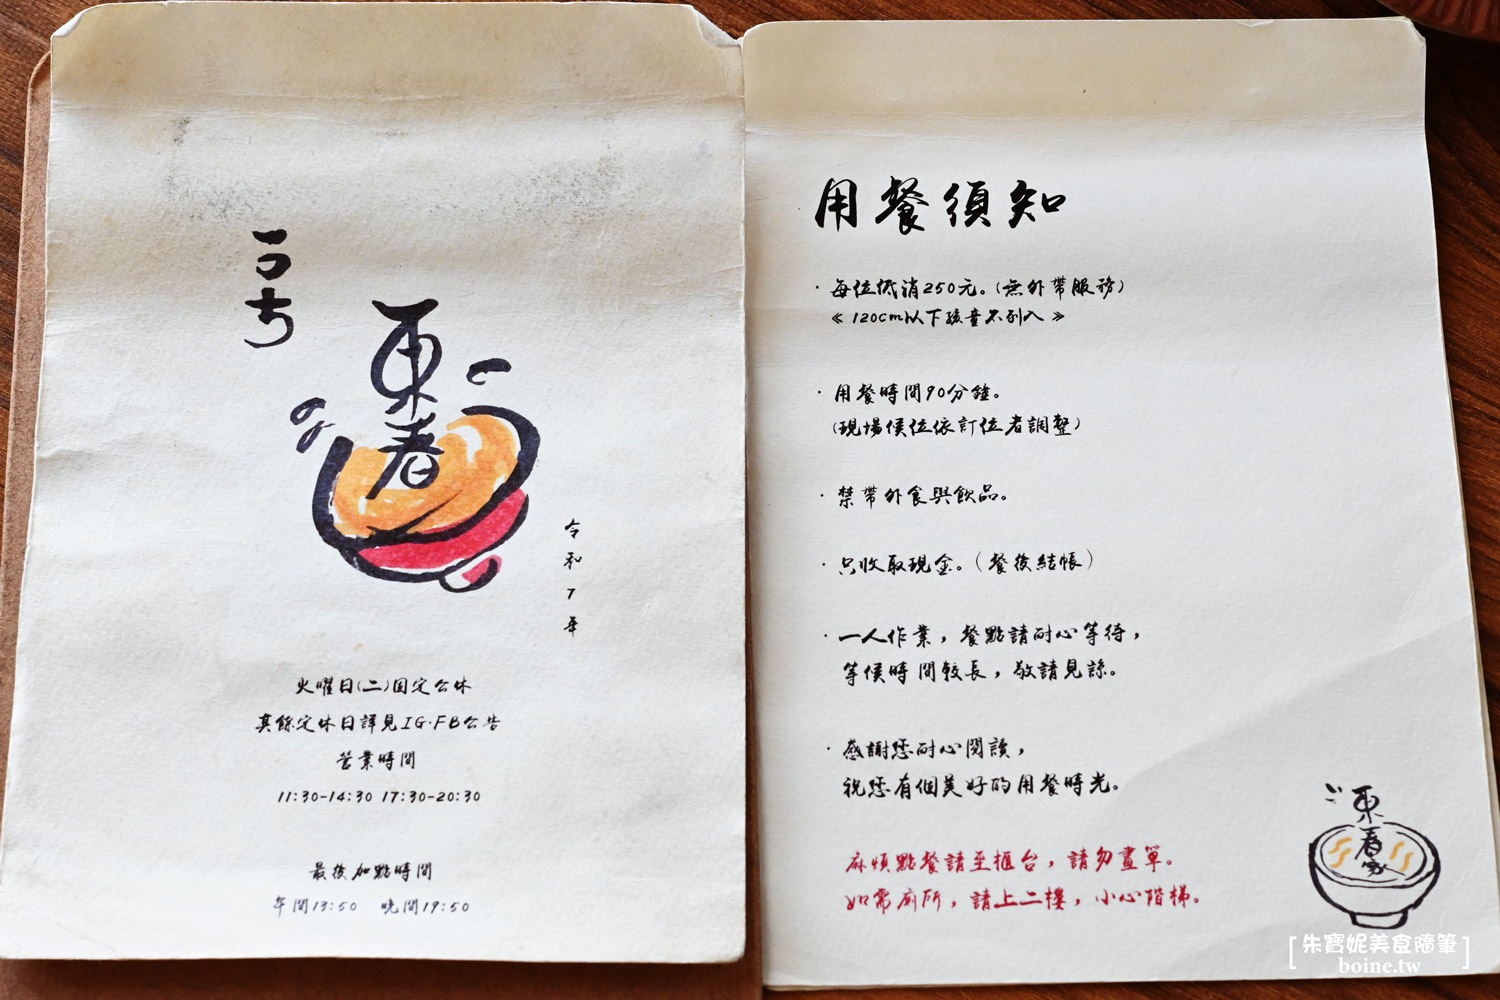 うち
東
春
令和7年
火曜日(二)固定公休
其餘定休日詳見IG·FB公告
営業時間
11:30-14:30 17:30-20:30
最後加點時間
午間13:50 晚間19:50
用餐須知
·每位低消250元。(無外帶服務)
《120cm以下孩童不列入》
·用餐時間90分鐘。
(現場候位依訂位者調整)
·禁帶外食與飲品。
·只收取現金。(餐後結帳)
·一人作業，餐點請耐心等待，
等候時間較長，敬請見諒。
·感謝您耐心閱讀，
祝您有個美好的用餐時光。
麻煩點餐請至櫃台，請勿畫單。
如需廁所，請上二樓，小心階梯。
東春家
[朱寶妮美食隨筆]
boine.tw